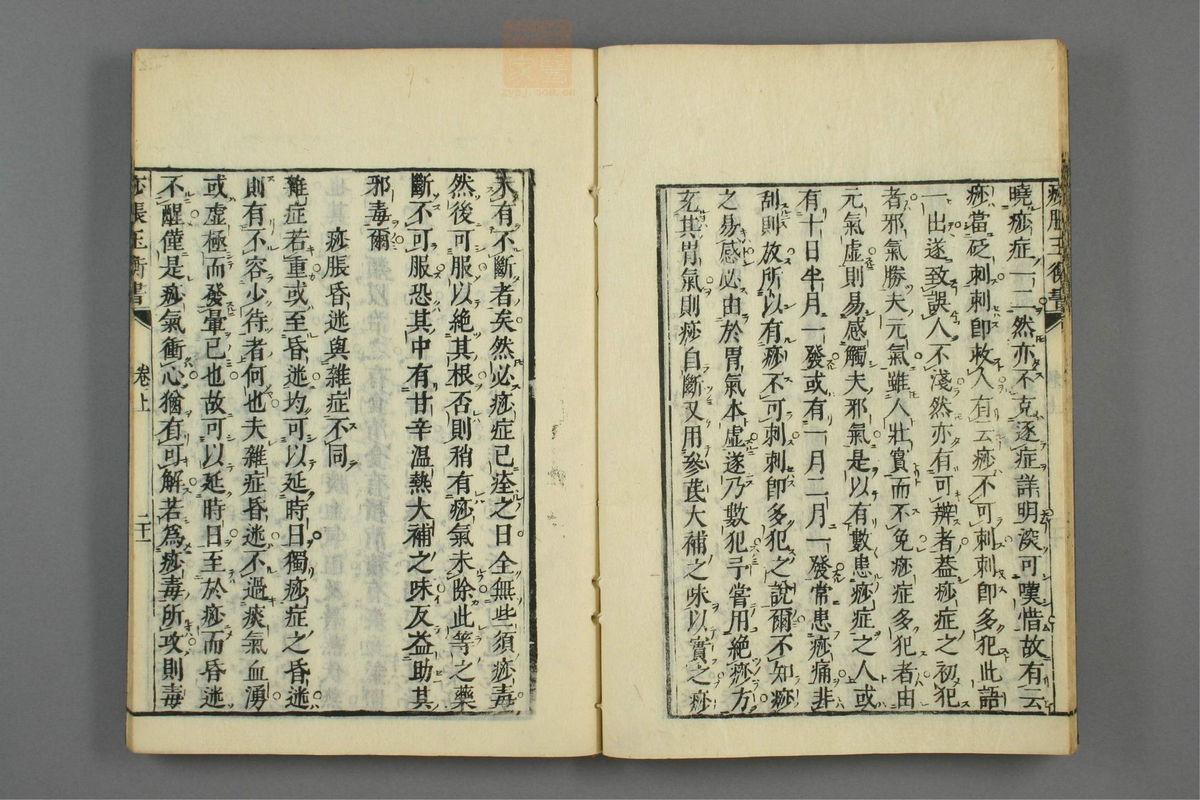 曉痧症一二然亦不克逐症詳明深可嘆惜故有云
痧當砭刺刺即救人有云痧不可刺刺即多犯此語
一出遂致誤人不淺然亦有可辨者葢痧症之初犯
者邪氣勝夫元氣雖人壯實而不免痧症多犯者由
元氣虛則易感觸夫邪氣是以有數患痧症之人或
有十日半月一發或有一月二月一發常患痧痛非
刮則放所以有痧不可刺刺即多犯之說爾不知痧
之易感必由於胃氣本虛遂乃數犯予嘗用絶痧方
充其胃氣則痧自斷又用參芪大補之味以實之痧
未有不斷者矣然必痧症已痊之日全無些須痧毒
然後可服以絶其根否則稍有痧氣未除此等之藥
斷不可服恐其中有甘辛溫熱大補之味反益助其
邪毒爾
痧脹昏迷與雜症不同
雜症若重或至昏迷均可以延時日獨痧症之昏迷
則有不容少待者何也夫雜症昏迷不過痰氣血湧
或虛極而發暈已也故可以延時日至於痧而昏迷
不醒僅是痧氣衝心猶有可解若爲痧毒所攻則毒
痧脹玉衡書
卷上